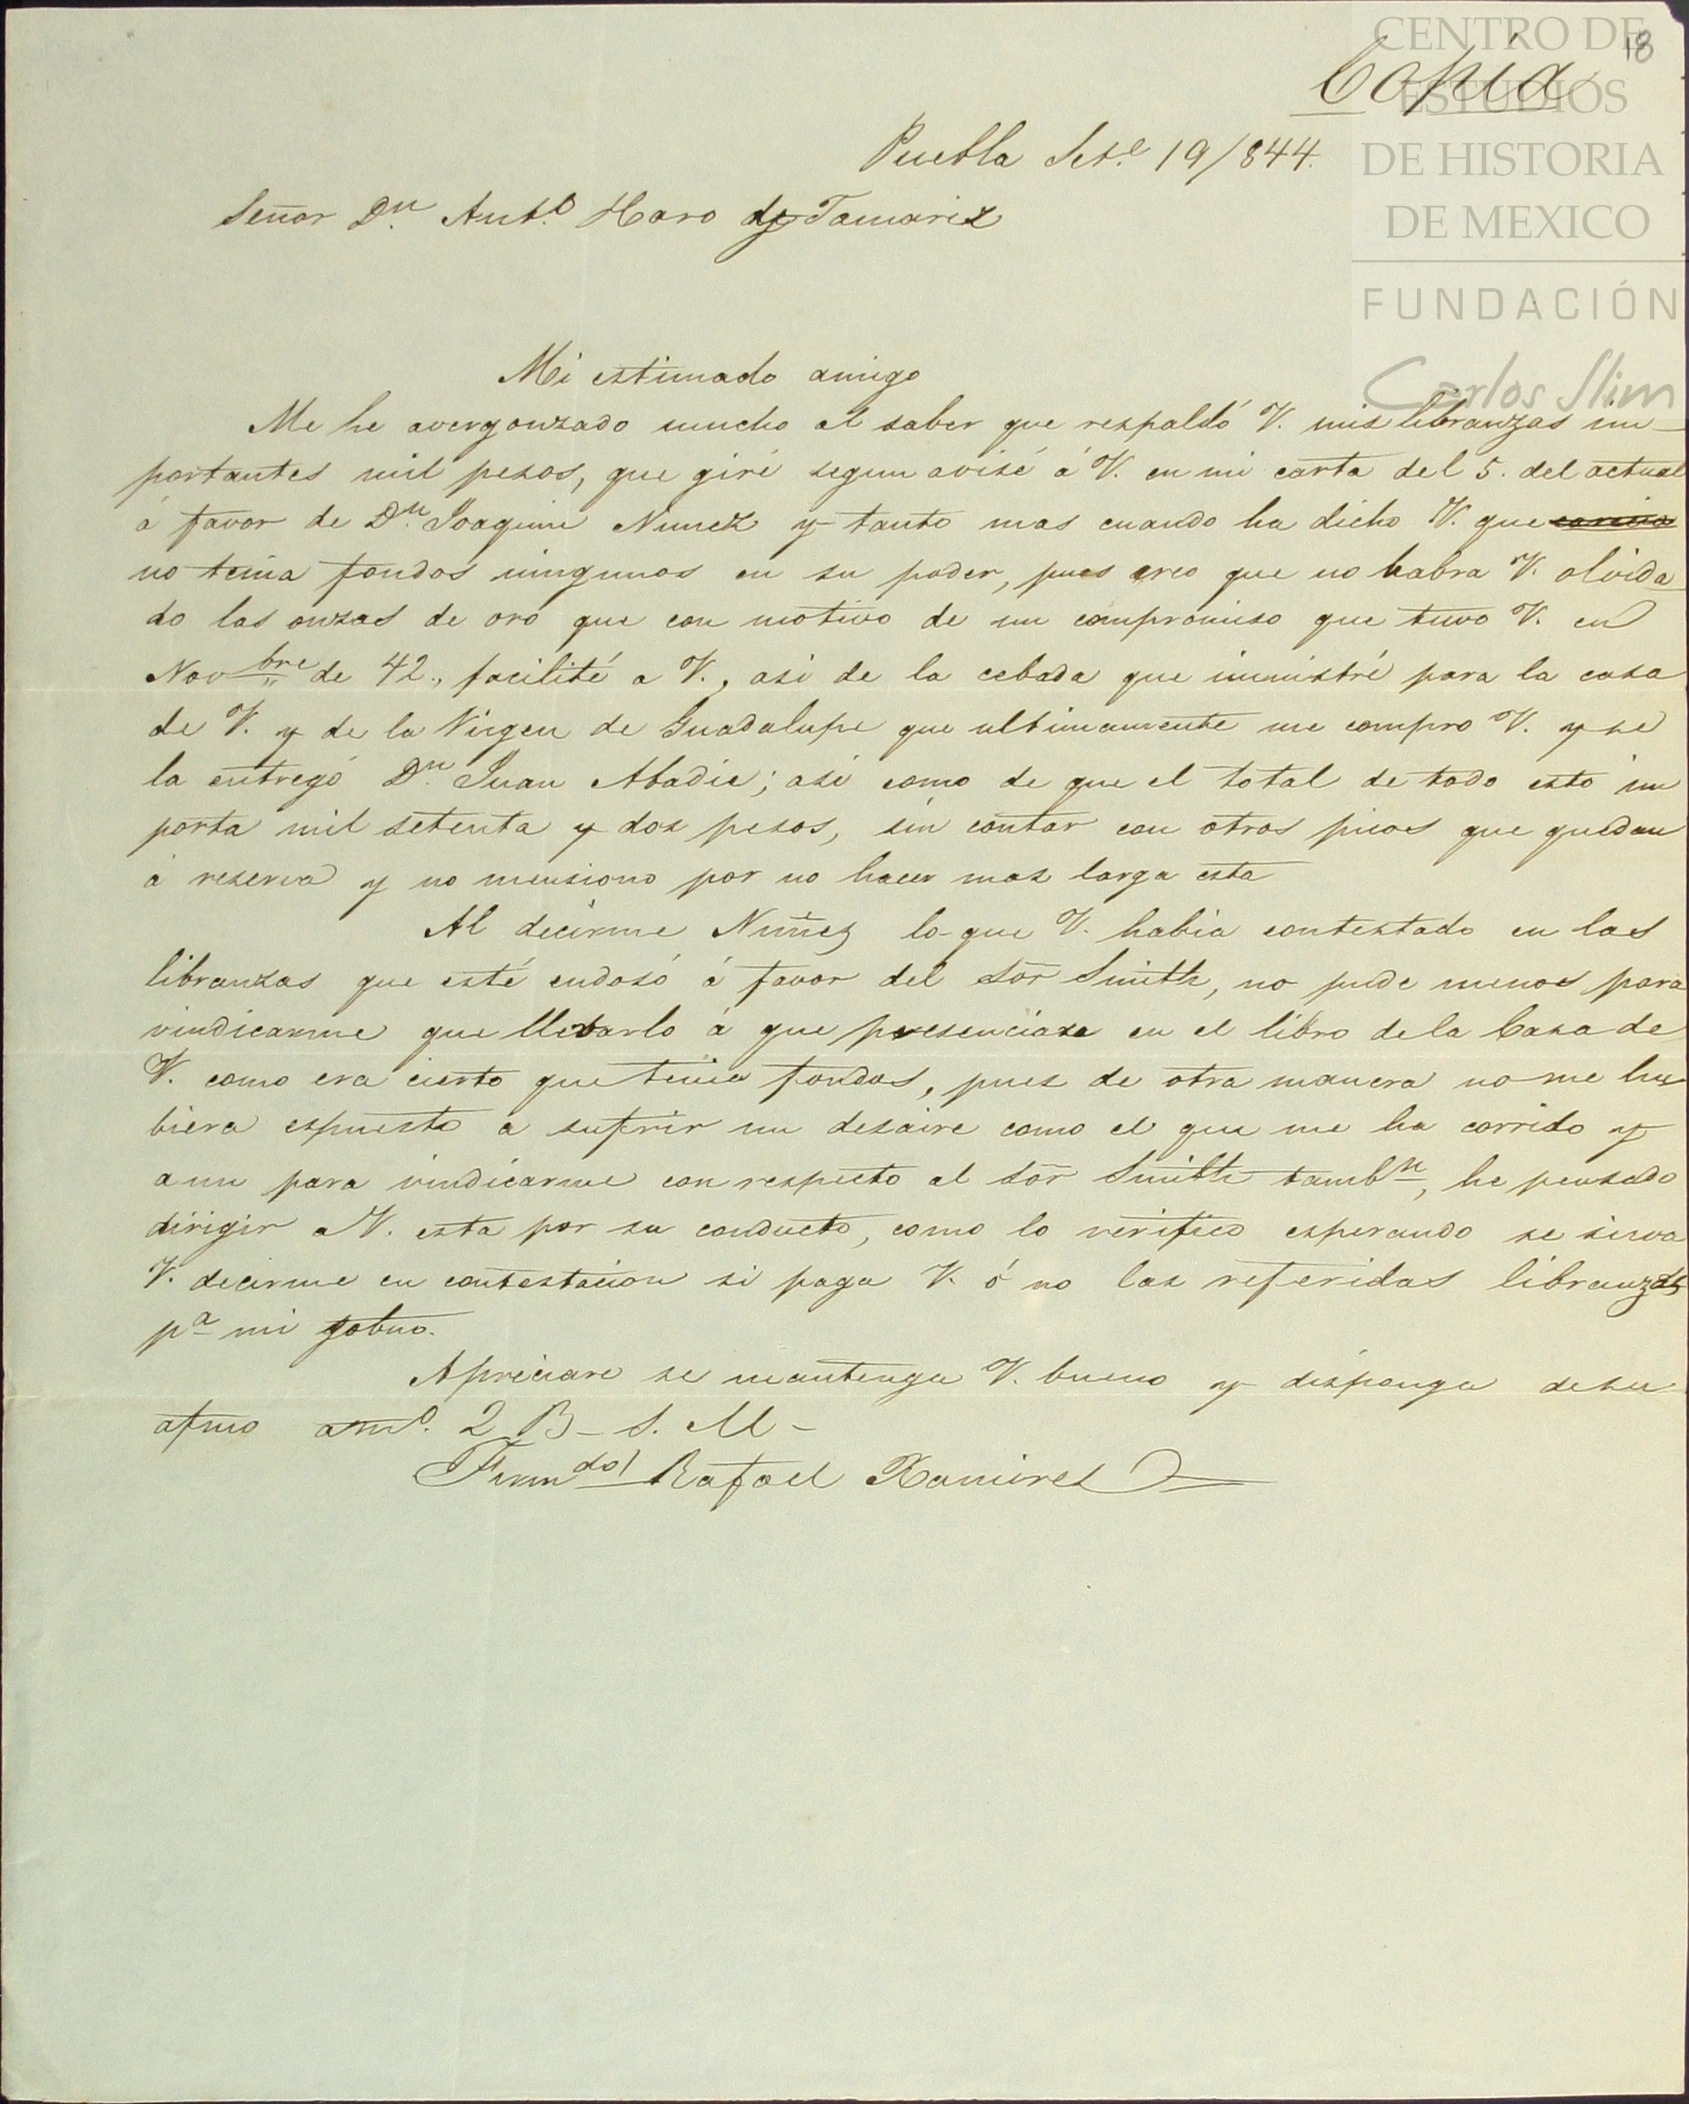 18
Copia
CENTRO DE
ESTUDIOS
DE HISTORIA
DE MEXICO
FUNDACIÓN
Carlos Slim
Puebla Set.e 19/844.
Señor Dn. Ant.o Haro de Tamariz
Mi estimado amigo
Me he avergonzado mucho al saber que respaldó V. mis libranzas im-
portantes mil pesos, que giré segun avisé á V. en mi carta del 5. del actual
á favor de Dn. Joaquin Nunez y tanto mas cuando ha dicho V. que
no tenia fondos ningunos en su poder, pues creo que no habra V. olvida
do las onzas de oro que con motivo de un compromiso que tuvo V. en
Novbre de 42., facilité a V., asi de la cebada que ministré para la casa
de V. y de la Virgen de Guadalupe que ultimamente me compro V. y se
la entregó Dn. Juan Abadie; asi como de que el total de todo esto im
porta mil setenta y dos pesos, sin contar con otros picos que quedan
á reserva y no mensiono por no hacer mas larga esta
Al decirme Nuñez lo que V. habia contestado en las
libranzas que esté endosó á favor del Sor Smith, no pude menos para
vindicarme que llebarlo á que presenciase en el libro de la Casa de
V. como era cierto que tenia fondos, pues de otra manera no me hu
biera espuesto a sufrir un desaire como el que me ha corrido y
aun para vindicarme con respecto al Sor Smith tambn, he pensado
dirigir a V. esta por su conducto, como lo verifico esperando se sirva
V. decirme en contestacion si paga V. ó no las referidas libranzas
pa mi gobno.
Apreciare se mantenga V. bueno y disponga de su
afmo amo. Q B- S. M-
Firmdo/ Rafael Ramires